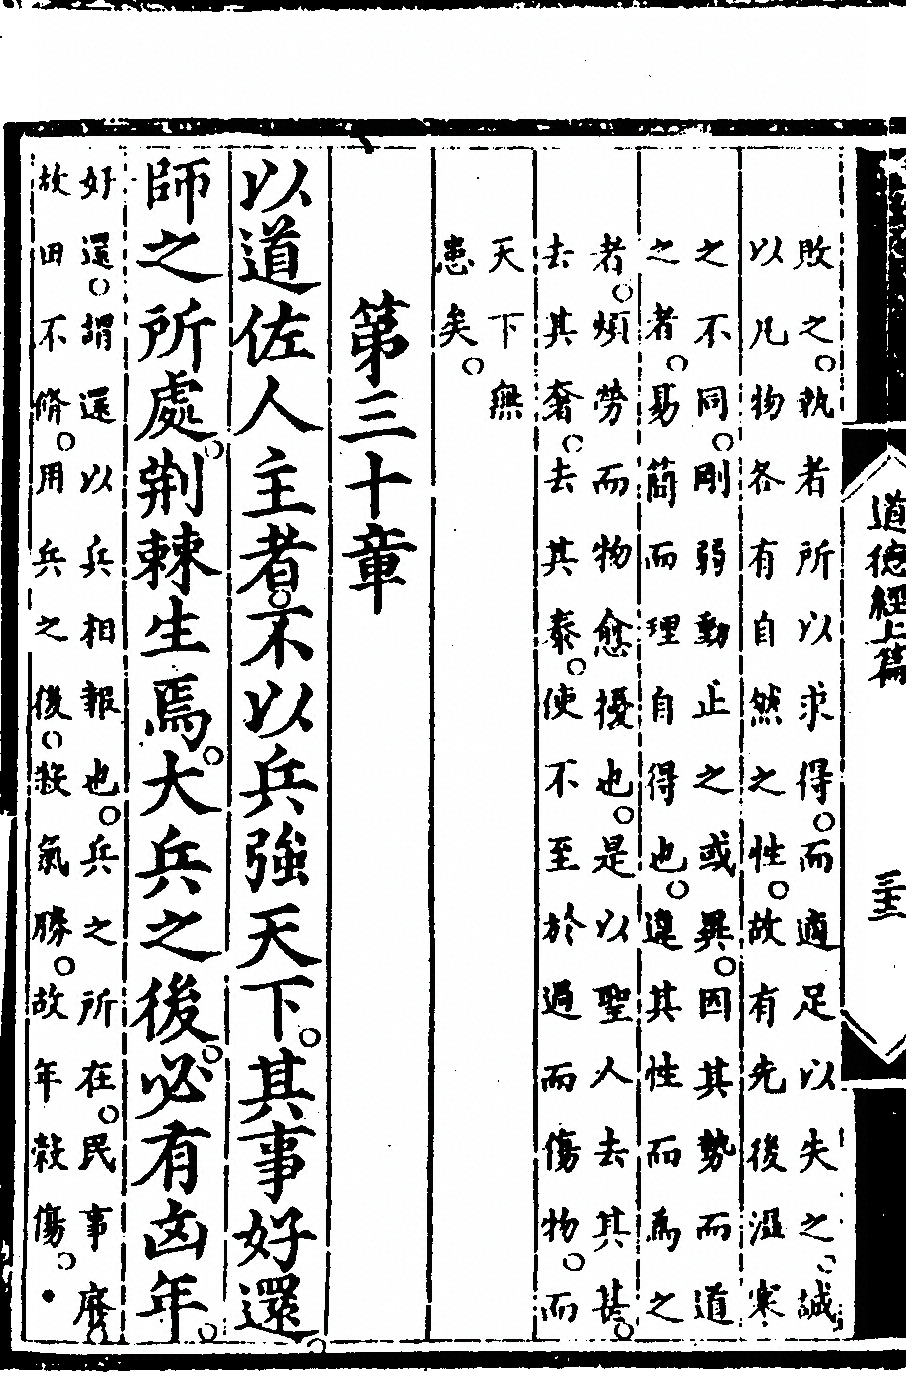 道德經上篇
三十三
敗之。執者所以求得。而適足以失之。誠
以凡物各有自然之性。故有先後溫寒
之不同。剛弱動止之或異。因其勢而道
之者。易簡而理自得也。違其性而為之
者。煩勞而物愈擾也。是以聖人去其甚。
去其奢。去其泰。使不至於過而傷物。而
天下無
患矣。
第三十章
以道佐人主者。不以兵強天下。其事好還。
師之所處。荊棘生焉。大兵之後。必有凶年。
好還。謂還以兵相報也。兵之所在。民事廢。
故田不脩。用兵之後。殺氣勝。故年穀傷。